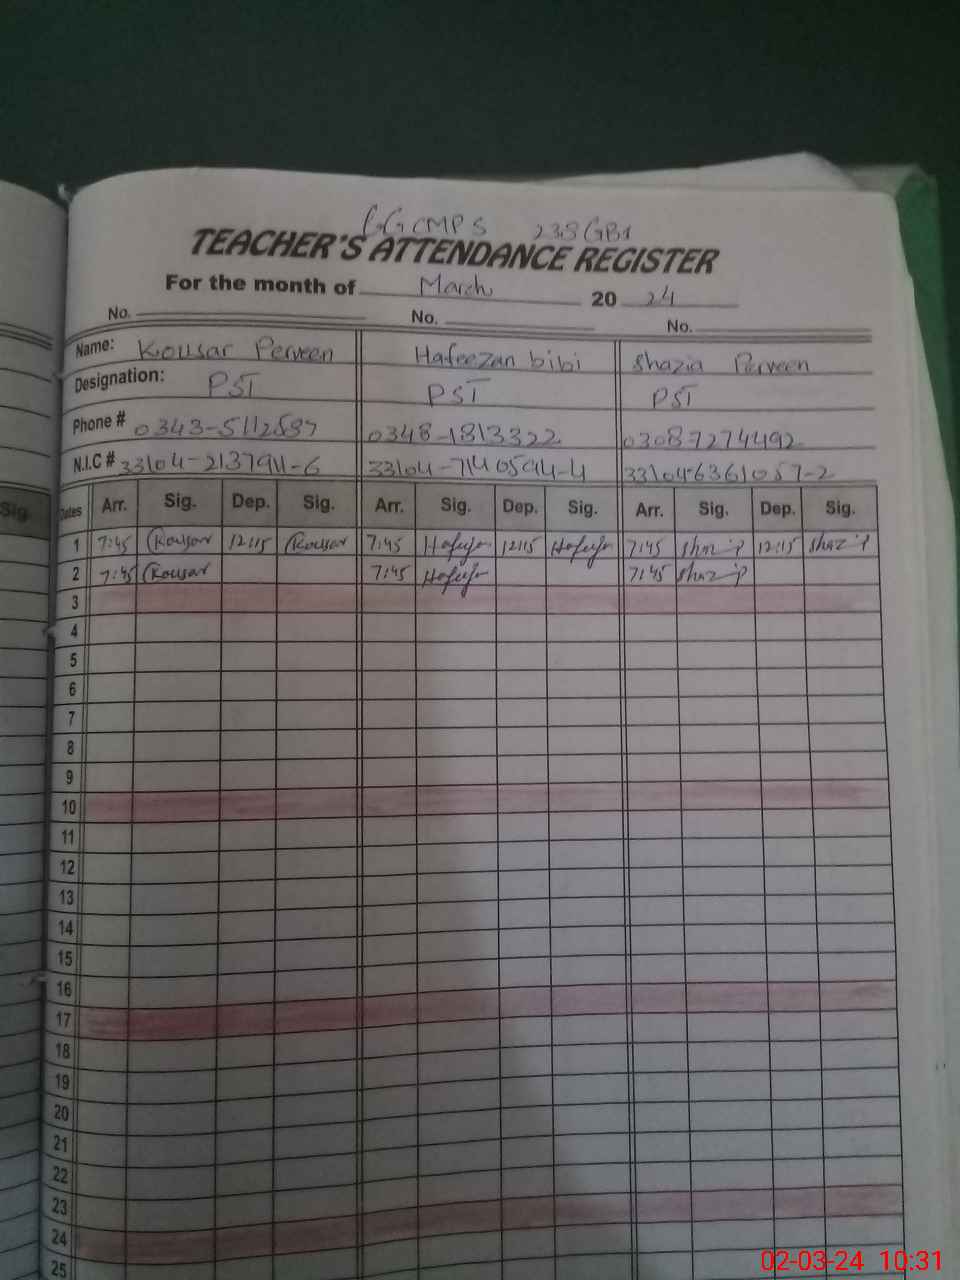 GGCMPS 238 GB1
TEACHER'S ATTENDANCE REGISTER
For the month of March 20 24
No. No. No.
Name: Kousar Perveen Hafeezan bibi Shazia Perveen
Designation: PST PST PST
Phone # 0343-5112587 0348-1813322 03087274492
N.I.C # 33104-2137911-6 33104-7140594-4 33104-6361057-2
Sig. Dates Arr. Sig. Dep. Sig. Arr. Sig. Dep. Sig. Arr. Sig. Dep. Sig.
1 7:45 Kousar 12:15 Kousar 7:45 12:15 7:45 12:15
2 7:45 Kousar 7:45 7:45
3
4
5
6
7
8
9
10
11
12
13
14
15
16
17
18
19
20
21
22
23
24
25
02-03-24 10:31